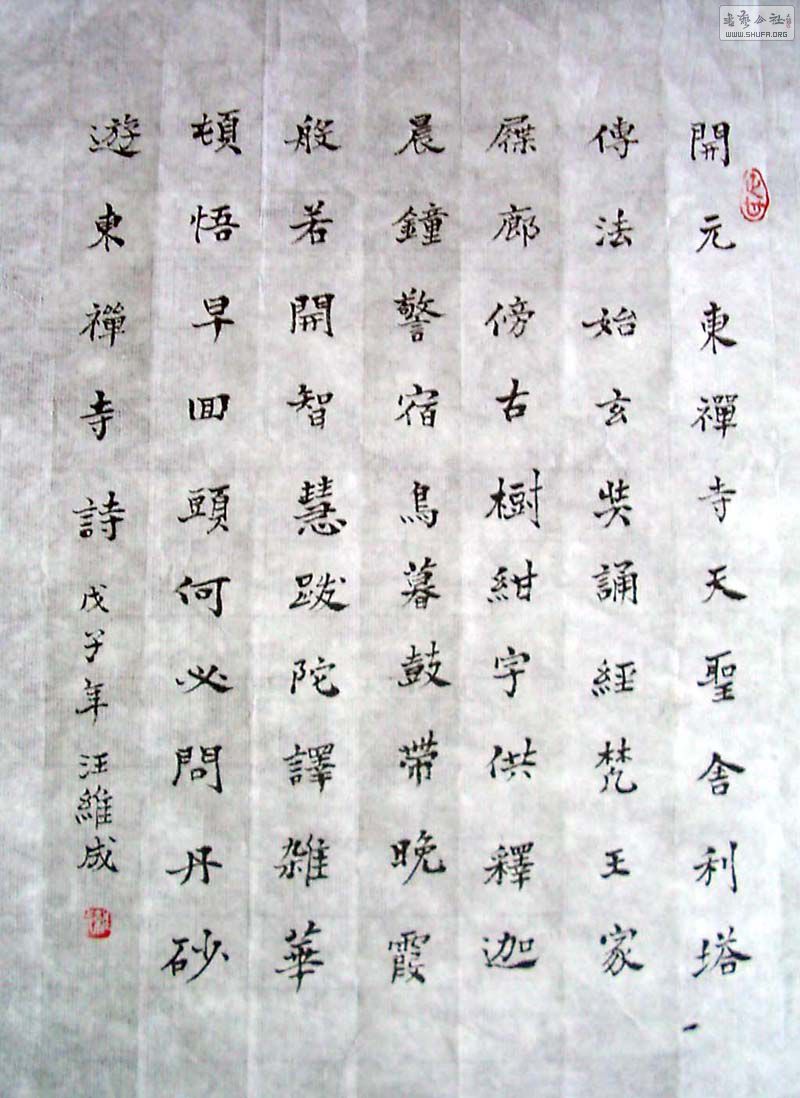 開元東禪寺天聖舍利塔
傳法始玄奘誦經梵王家
屧廊傍古樹紺宇供釋迦
晨鐘警宿鳥暮鼓帶晚霞
般若開智慧跋陀譯雑華
頓悟早囬頭何必問丹砂
遊東禪寺詩 戊子年 汪維成
书艺公社
WWW.SHUFA.ORG